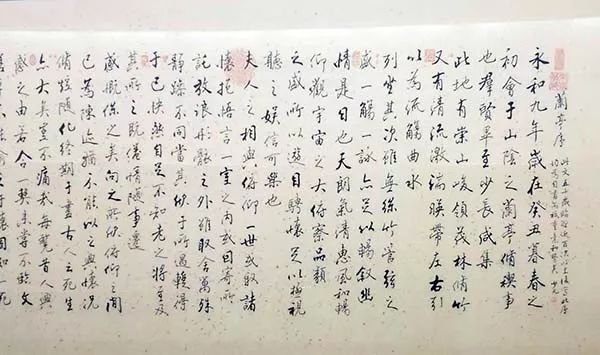 蘭亭序
永和九年歲在癸丑暮春之
初會于山陰之蘭亭脩稧事
也羣賢畢至少長咸集
此地有崇山峻領茂林脩竹
又有清流激湍暎帶左右引
以為流觴曲水
列坐其次雖無絲竹管弦之
盛一觴一詠亦足以暢叙幽
情是日也天朗氣清惠風和暢
仰觀宇宙之大俯察品類
之盛所以遊目騁懷足以極視
聽之娛信可樂也
夫人之相與俯仰一世或取諸
懷抱悟言一室之內或因寄所
託放浪形骸之外雖取舍萬殊
靜躁不同當其欣于所遇蹔得
于己快然自足不知老之將至及
其所之既惓情隨事遷
感慨係之矣向之所欣俛仰之間
已為陳迹猶不能以之興懷況
脩短隨化終期于盡古人云死生
亦大矣豈不痛哉每攬昔人興
感之由若合一契未嘗不臨文
懷固知一死